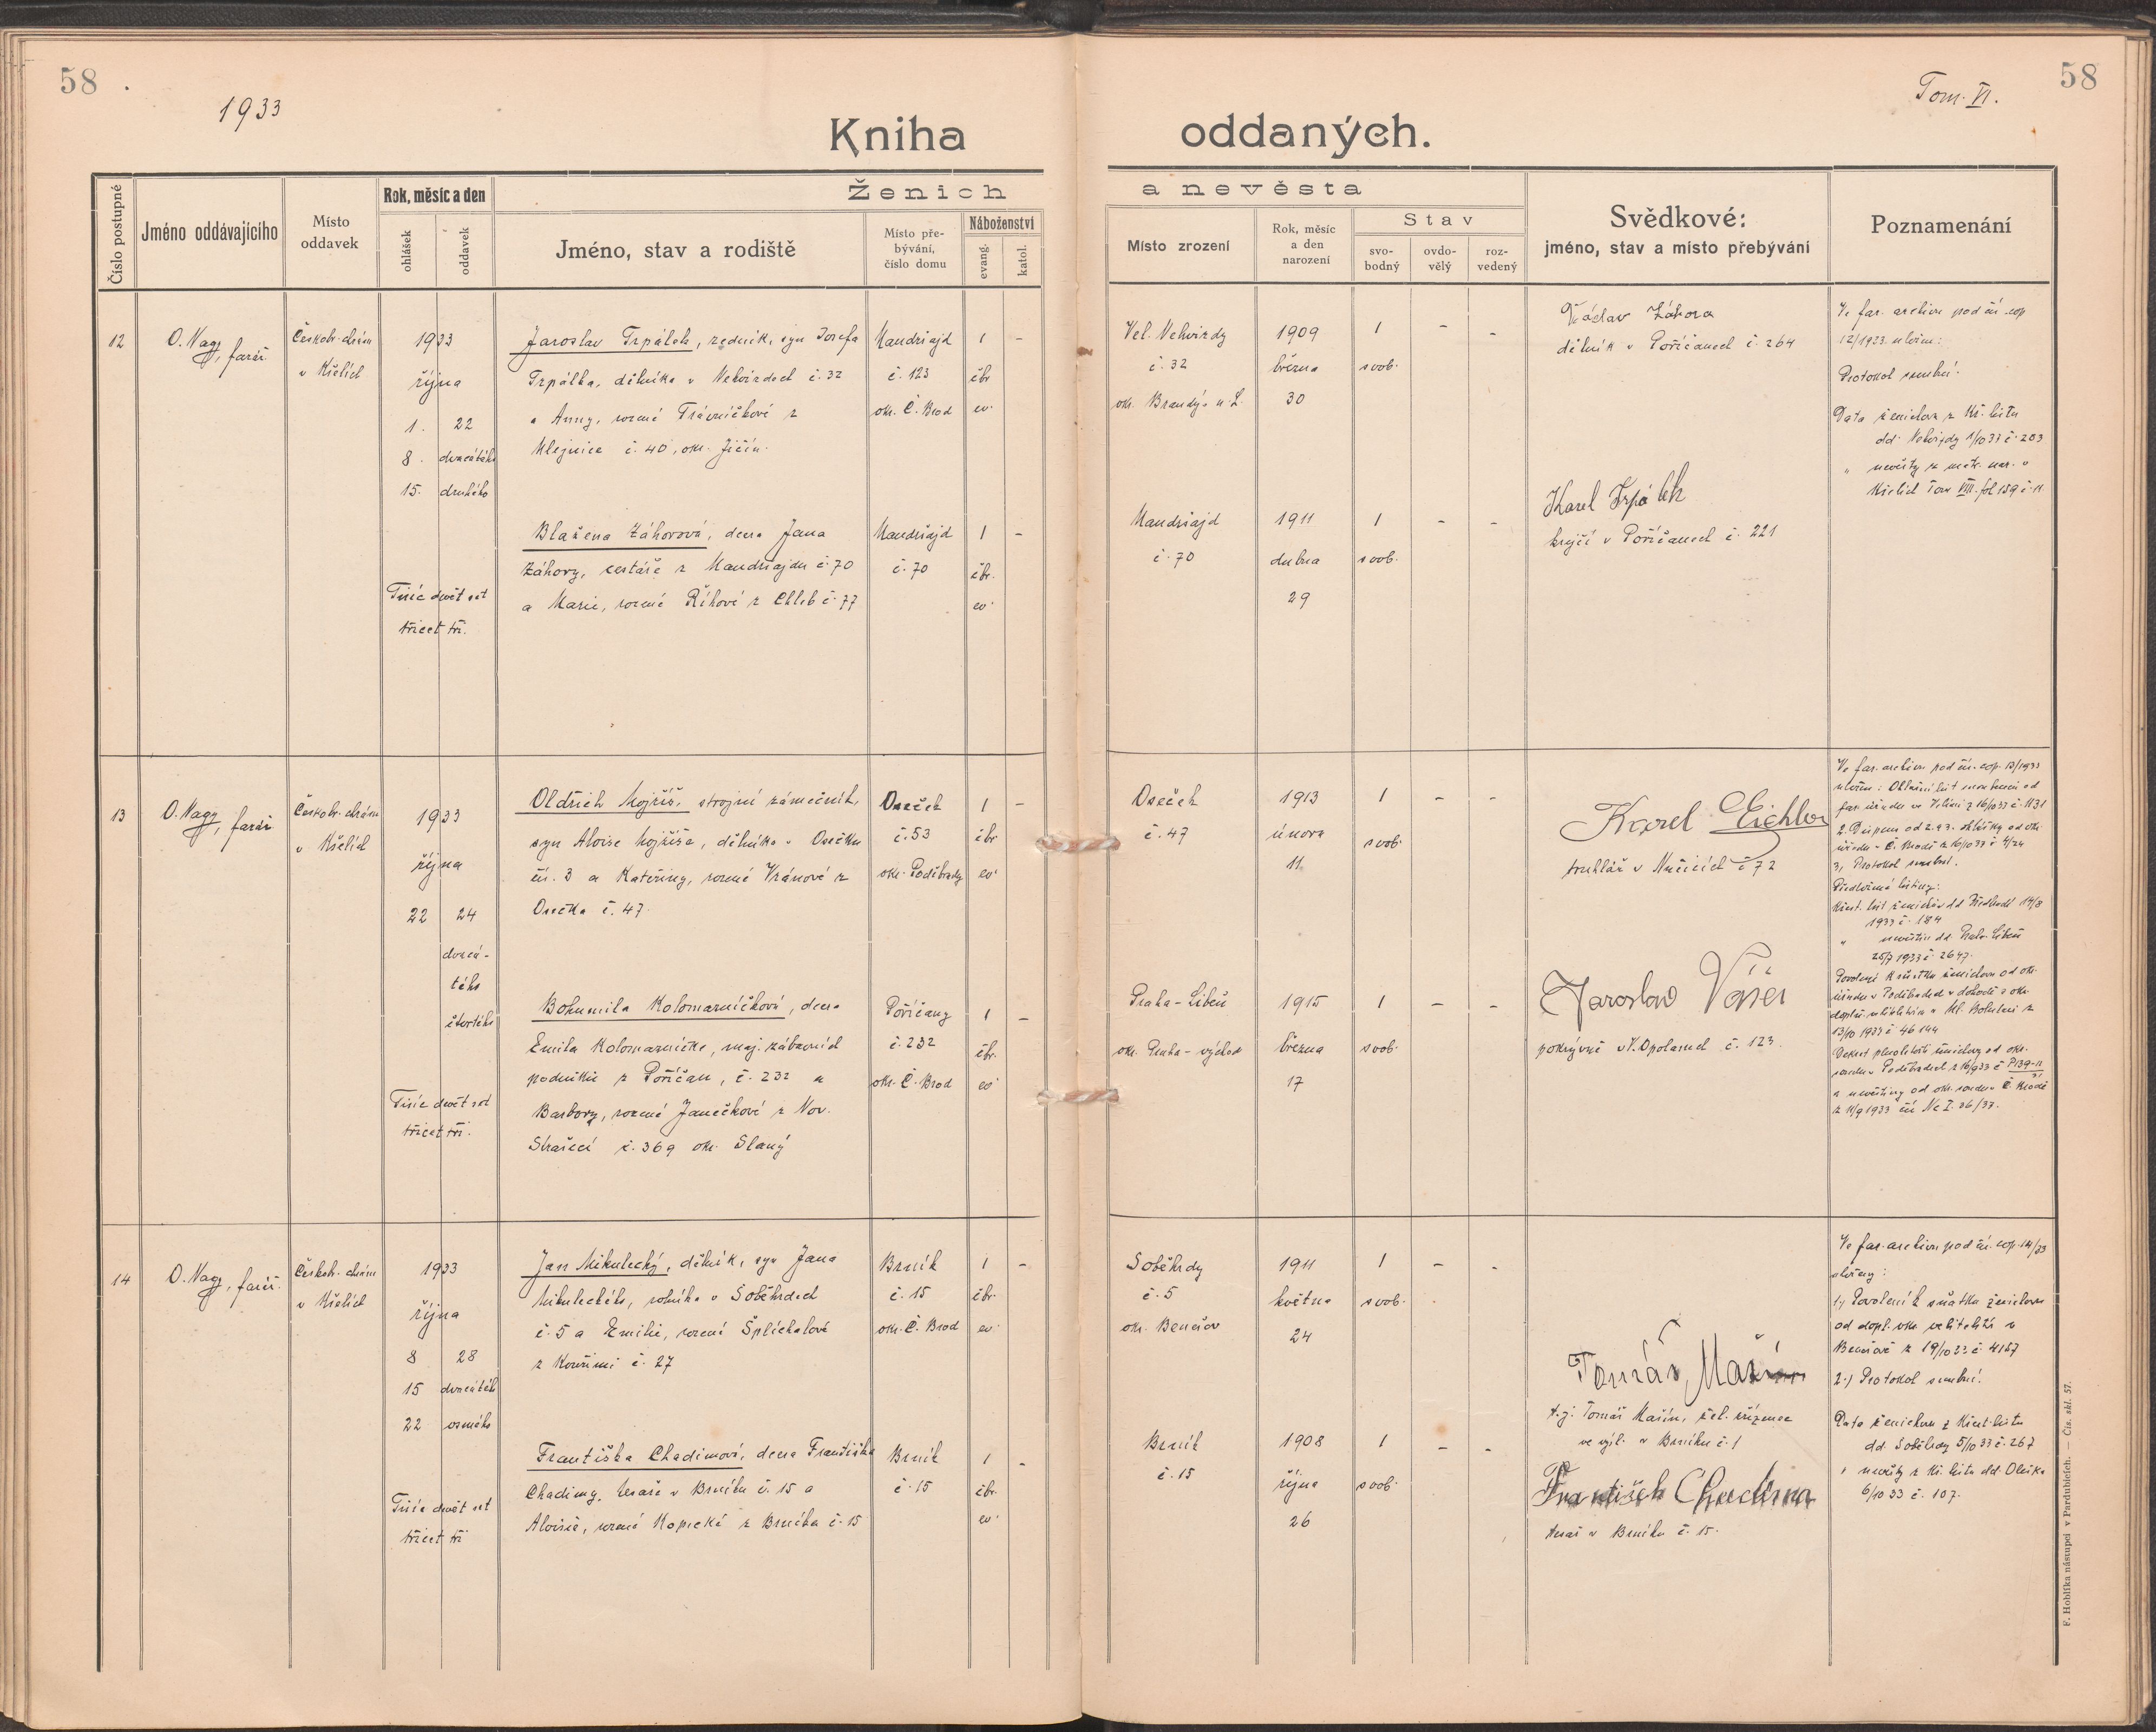 58
58
1933
Tom. VI.
Kniha oddaných.
Číslo postupné
Jméno oddávajícího
Místo oddavek
Rok, měsíc a den
ohlášek
oddavek
Ženich a nevěsta
Jméno, stav a rodiště
Místo pře-
bývání,
číslo domu
Náboženství
evang.
katol.
Místo zrození
Rok, měsíc
a den
narození
Stav
svo-
bodný
ovdo-
vělý
roz-
vedený
Svědkové:
jméno, stav a místo přebývání
Poznamenání
12
O. Nagy, farář
Českobr. chrám
v Kšelích
1933
října
1. 22
8. dvacátého
15. druhého
Tisíc devět set
třicet tři.
Jaroslav Trpálek, řezník, syn Josefa
Trpálka, dělníka v Nehvizdech č. 32
a Anny, rozené Trávníčkové z
Mlejnice č. 40, okr. Jičín.
Mandšajd
č. 123
okr. Č. Brod
1 -
čbr.
ev.
Vel. Nehvizdy
č. 32
okr. Brandýs n. L.
1909
března
30
1 - -
svob.
Václav Záhora
dělník v Poříčanech č. 264
Ve far. archivu pod čís. cop.
12/1933 uložen:
Protokol snubní.
Data ženichova z kř. listu
dd. Nehvizdy 1/10 33 č. 203
" nevěsty z matr. nar. v
Kšelích Tom VIII. fol 159 č. 11
Blažena Záhorová, dcera Jana
Záhory, cestáře z Mandšajdu č. 70
a Marie, rozené Říhové z Chleb č. 77
Mandšajd
č. 70
1 -
čbr.
ev.
Mandšajd
č. 70
1911
dubna
29
1 - -
svob.
Karel Trpálek
krejčí v Poříčanech č. 221
13
O. Nagy, farář
Českobr. chrám
v Kšelích
1933
října
22 24
dvacá-
tého
čtvrtého
Tisíc devět set
třicet tři.
Oldřich Mojžíš, strojní zámečník,
syn Aloise Mojžíše, dělníka v Osečku
čís. 3 a Kateřiny, rozené Vránové z
Osečka č. 47.
Oseček
č. 53
okr. Poděbrady
1 -
čbr
ev.
Oseček
č. 47
1913
února
11.
1 - -
svob.
Karel Eichler
truhlář v Nučicích č 72
Ve far. archivu pod čís. cop. 13/1933
3, Protokol snubní.
Předložené listiny:
1933 č. 184
25/7 1933 č. 2647.
Bohumila Kolomazníčková, dcera
Emila Kolomazníčka, maj. zábavních
podniků z Poříčan, č. 232 a
Barbory, rozené Janečkové z Nov.
Strašecí č. 369 okr. Slaný
Poříčany
č. 232
okr. Č. Brod
1 -
čbr.
ev.
Praha-Libeň
okr. Praha-východ
1915
března
17
1 - -
svob.
Jaroslav
pokrývač v V. Opolanech č. 123.
13/10 1933 č 46144
14
O. Nagy, farář.
Českobr. chrám
v Kšelích
1933
října
8 28
15 dvacátého
22 osmého
Tisíc devět set
třicet tři
Jan Mikulecký, dělník, syn Jana
Mikuleckého, rolníka v Soběhrdech
č. 5 a Emilie, rozené Šplíchalové
z Kouřimi č. 27
Brník
č. 15
okr. Č. Brod
1 -
čbr.
ev.
Soběhrdy
č. 5
okr. Benešov
1911
května
24
1 - -
svob.
Tomáš Mašín
t.j. Tomáš Mašín, žel. zřízenec
ve výsl. v Brníku č. 1
Ve far. archivu pod čís. cop. 14/33
uloženy:
1.) Povolení k sňatku ženichovu
od dopl. okr. velitelství v
Benešově z 19/10 33 č 4167
2.) Protokol snubní.
Data ženichova z křest. listu
dd. Soběhrdy 5/10 33 č. 267
" nevěsty z kř. listu dd. Oleška
6/10 33 č. 107.
Františka Chadimová, dcera Františka
Chadimy, tesaře v Brníku č. 15 a
Aloisie, rozené Kopecké z Brníka č. 15
Brník
č. 15
1 -
čbr.
ev.
Brník
č. 15
1908
října
26
1 - -
svob.
František Chadima
tesař v Brníku č. 15.
F. Hoblíka nástupci v Pardubicích. — Čís. skl. 57.